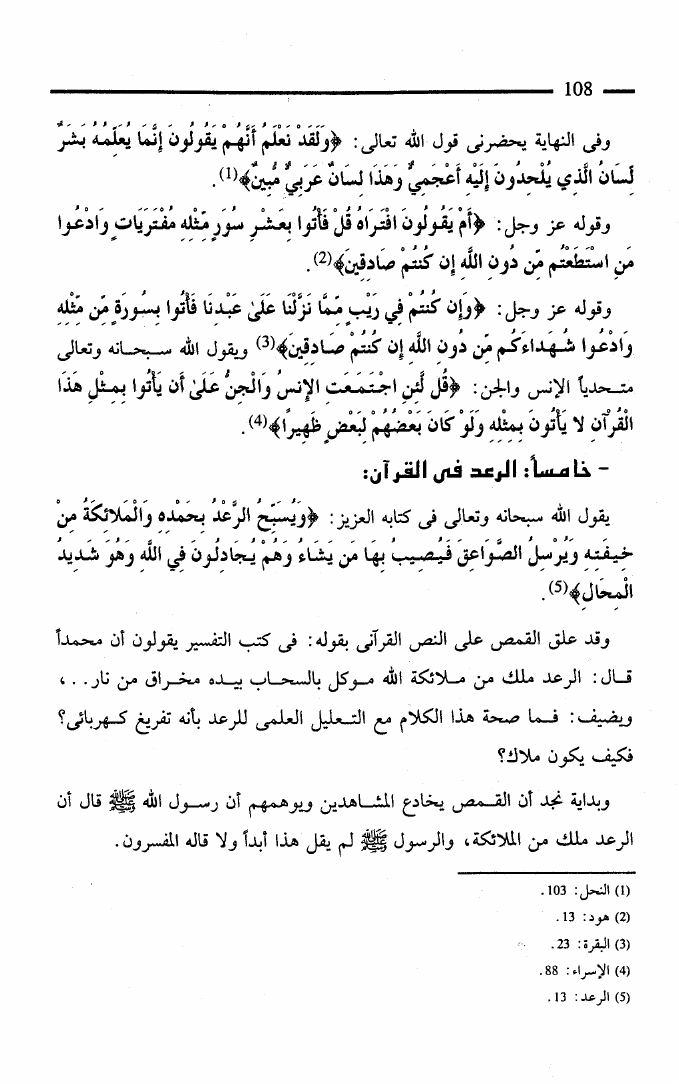 108
وفى النهاية يحضرنى قول الله تعالى: ﴿وَلَقَدْ نَعْلَمُ أَنَّهُمْ يَقُولُونَ إِنَّمَا يُعَلِّمُهُ بَشَرٌ
لِّسَانُ الَّذِي يُلْحِدُونَ إِلَيْهِ أَعْجَمِيٌّ وَهَذَا لِسَانٌ عَرَبِيٌّ مُّبِينٌ﴾(1).
وقوله عز وجل: ﴿أَمْ يَقُولُونَ افْتَرَاهُ قُلْ فَأْتُوا بِعَشْرِ سُوَرٍ مِّثْلِهِ مُفْتَرَيَاتٍ وَادْعُوا
مَنِ اسْتَطَعْتُم مِّن دُونِ اللَّهِ إِن كُنتُمْ صَادِقِينَ﴾(2).
وقوله عز وجل: ﴿وَإِن كُنتُمْ فِي رَيْبٍ مِّمَّا نَزَّلْنَا عَلَىٰ عَبْدِنَا فَأْتُوا بِسُورَةٍ مِّن مِّثْلِهِ
وَادْعُوا شُهَدَاءَكُم مِّن دُونِ اللَّهِ إِن كُنتُمْ صَادِقِينَ﴾(3) ويقول الله سبحانه وتعالى
متحدياً الإنس والجن: ﴿قُل لَّئِنِ اجْتَمَعَتِ الإِنسُ وَالْجِنُّ عَلَىٰ أَن يَأْتُوا بِمِثْلِ هَذَا
الْقُرْآنِ لا يَأْتُونَ بِمِثْلِهِ وَلَوْ كَانَ بَعْضُهُمْ لِبَعْضٍ ظَهِيرًا﴾(4).
- خامساً: الرعد فى القرآن:
يقول الله سبحانه وتعالى فى كتابه العزيز: ﴿وَيُسَبِّحُ الرَّعْدُ بِحَمْدِهِ وَالْمَلائِكَةُ مِنْ
خِيفَتِهِ وَيُرْسِلُ الصَّوَاعِقَ فَيُصِيبُ بِهَا مَن يَشَاءُ وَهُمْ يُجَادِلُونَ فِي اللَّهِ وَهُوَ شَدِيدُ
الْمِحَالِ﴾(5).
وقد علق القمص على النص القرآنى بقوله: فى كتب التفسير يقولون أن محمداً
قال: الرعد ملك من ملائكة الله موكل بالسحاب بيده مخراق من نار..،
ويضيف: فما صحة هذا الكلام مع التعليل العلمى للرعد بأنه تفريغ كهربائى؟
فكيف يكون ملاك؟
وبداية نجد أن القمص يخادع المشاهدين ويوهمهم أن رسول الله ﷺ قال أن
الرعد ملك من الملائكة، والرسول ﷺ لم يقل هذا أبداً ولا قاله المفسرون.
(1) النحل: 103.
(2) هود: 13.
(3) البقرة: 23.
(4) الإسراء: 88.
(5) الرعد: 13.